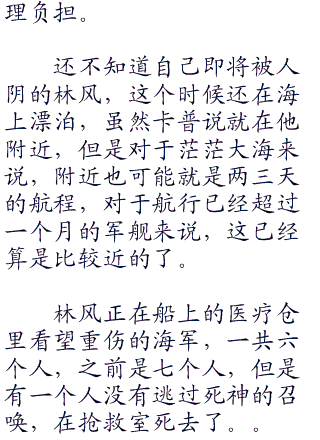 理负担。
还不知道自己即将被人
阴的林风，这个时候还在海
上漂泊，虽然卡普说就在他
附近，但是对于茫茫大海来
说，附近也可能就是两三天
的航程，对于航行已经超过
一个月的军舰来说，这已经
算是比较近的了。
林风正在船上的医疗仓
里看望重伤的海军，一共六
个人，之前是七个人，但是
有一个人没有逃过死神的召
唤，在抢救室死去了。。